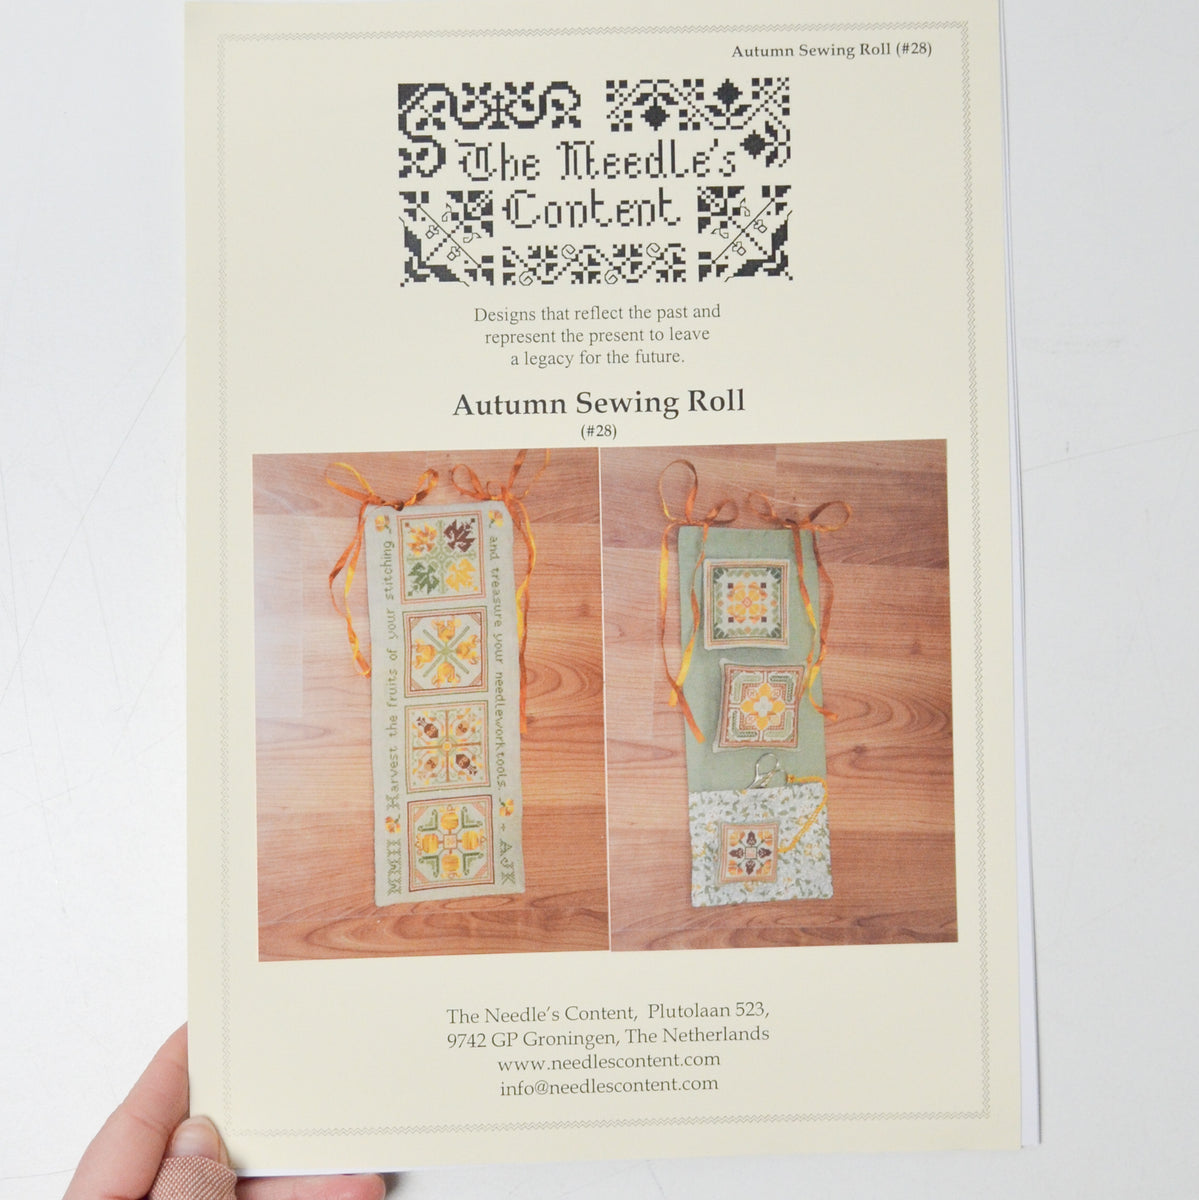 Autumn Sewing Roll (#28)
The Needle's
Content
Designs that reflect the past and
represent the present to leave
a legacy for the future.
Autumn Sewing Roll
(#28)
MMII Harvest the fruits of your stitching
and treasure your needlework tools. + AJK
The Needle's Content, Plutolaan 523,
9742 GP Groningen, The Netherlands
www.needlescontent.com
info@needlescontent.com